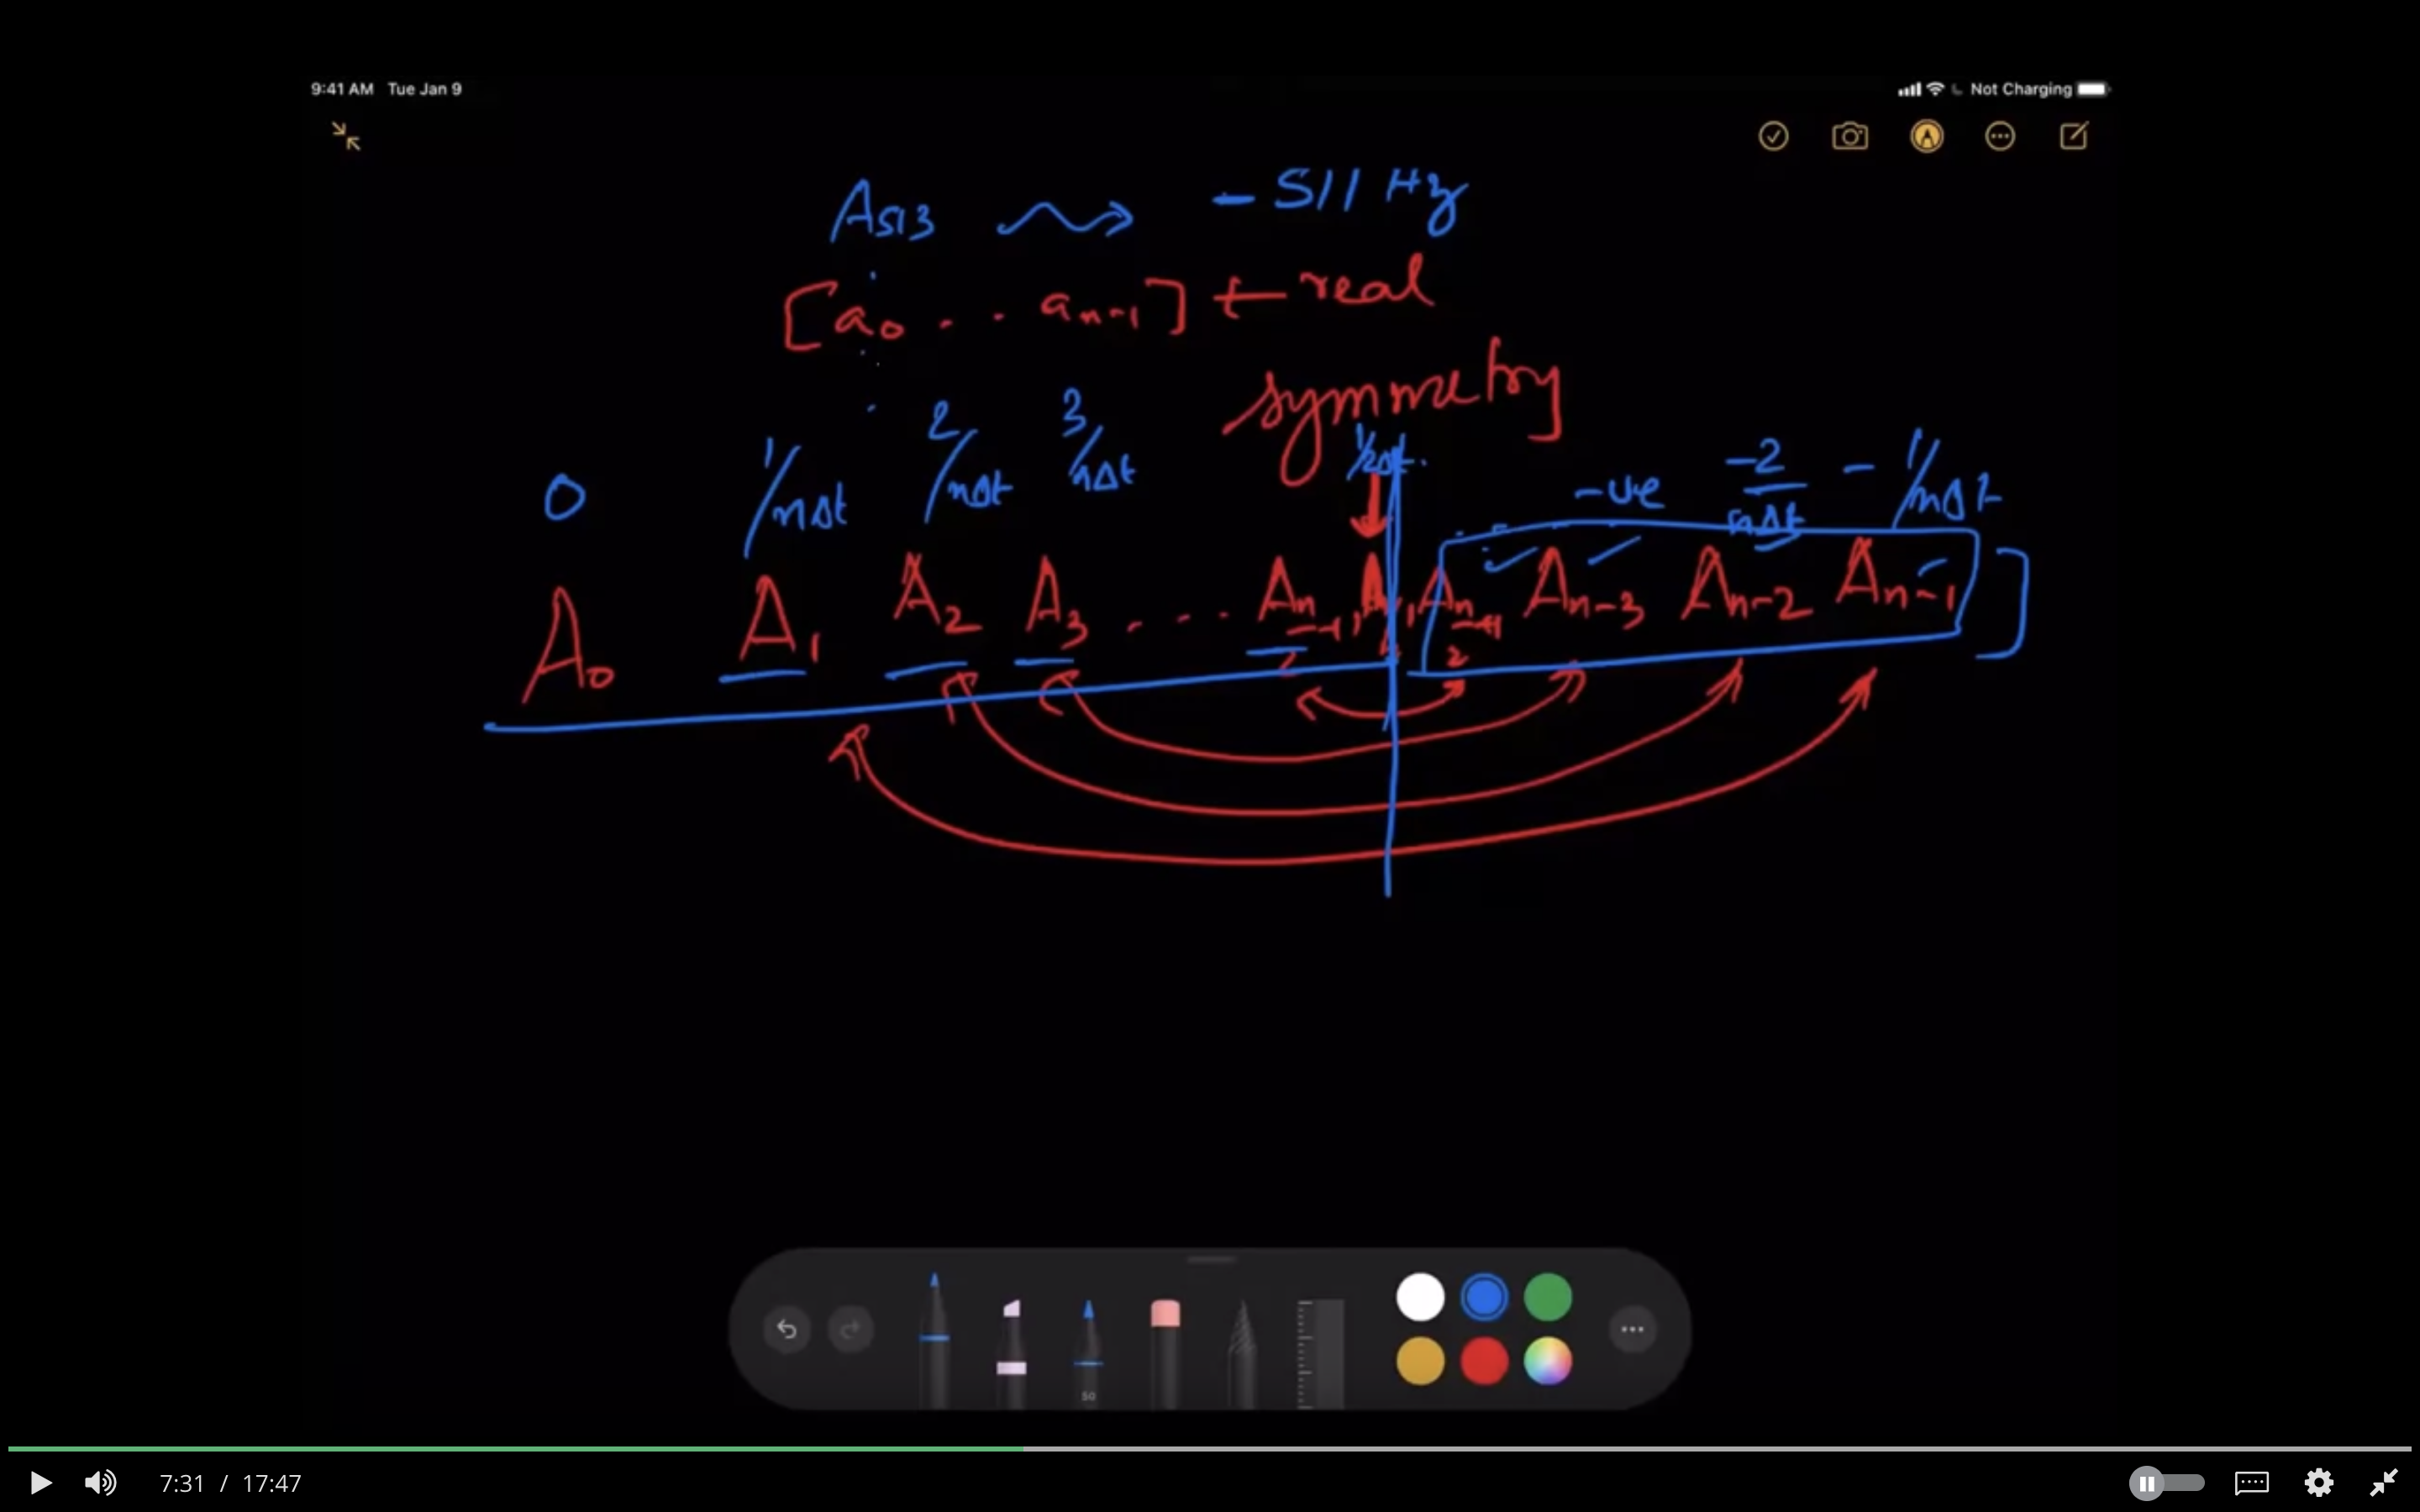 9:41 AM Tue Jan 9
Not Charging
A513 ⇝ - 511 Hz
[a0 . . an-1] ← real
symmetry
0 1/nΔt 2/nΔt 3/nΔt 1/2Δt -ve -2/nΔt -1/nΔt
A0 A1 A2 A3 . . . . An/2-1, An/2, An/2+1 An-3 An-2 An-1 ]
50
7:31 / 17:47